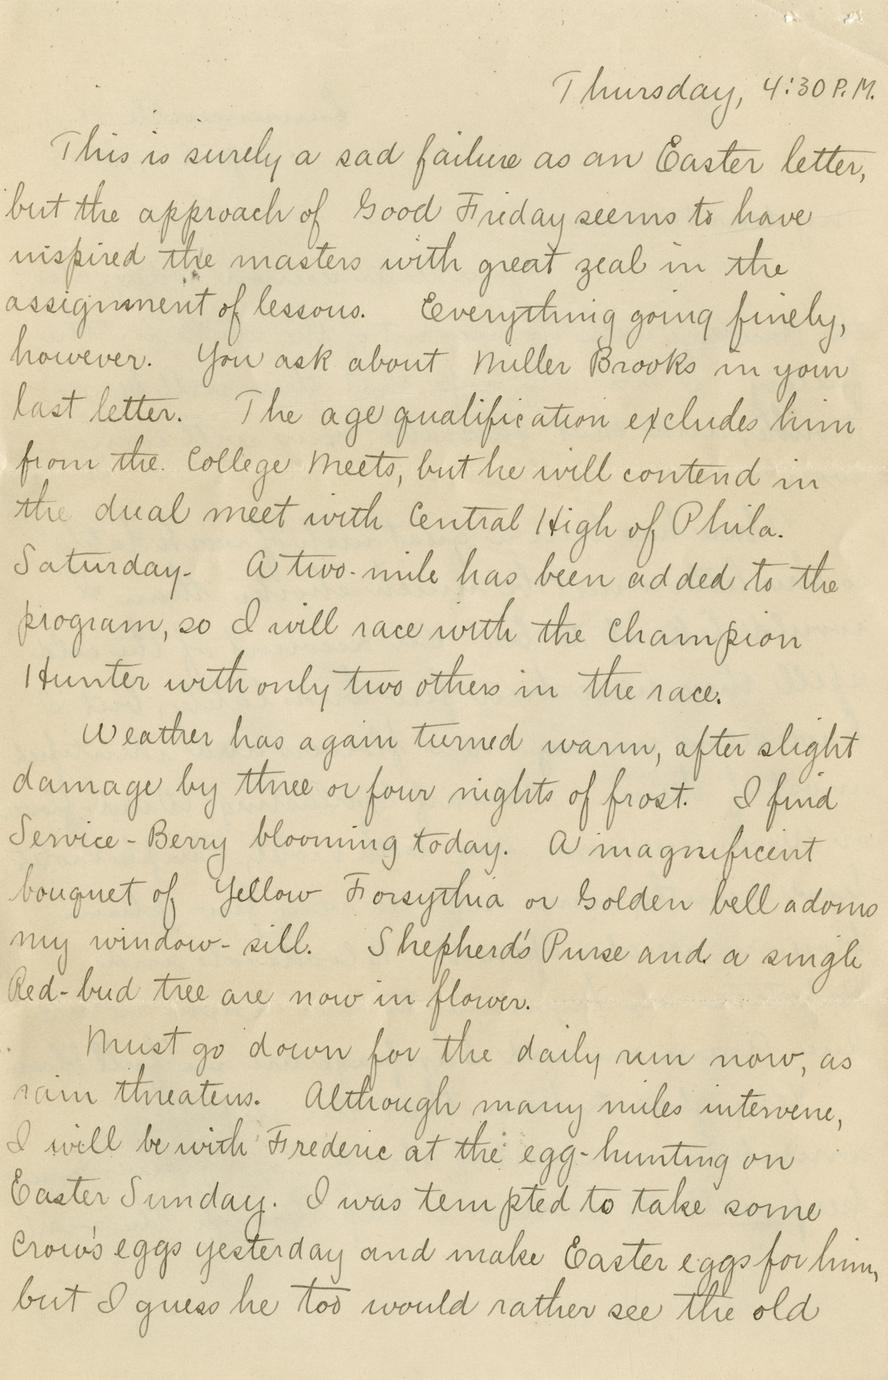 Thursday, 4:30 P.M.
This is surely a sad failure as an Easter letter,
but the approach of Good Friday seems to have
inspired the masters with great zeal in the
assignment of lessons. Everything going finely,
however. You ask about Miller Brooks in your
last letter. The age qualification excludes him
from the College Meets, but he will contend in
the dual meet with Central High of Phila.
Saturday. A two-mile has been added to the
program, so I will race with the Champion
Hunter with only two others in the race.
Weather has again turned warm, after slight
damage by three or four nights of frost. I find
Service-Berry blooming today. A magnificent
bouquet of Yellow Forsythia or Golden bell adorns
my window-sill. Shepherd's Purse and a single
Red-bud tree are now in flower.
Must go down for the daily run now, as
rain threatens. Although many miles intervene,
I will be with Frederic at the egg-hunting on
Easter Sunday. I was tempted to take some
Crow's eggs yesterday and make Easter eggs for him,
but I guess he too would rather see the old